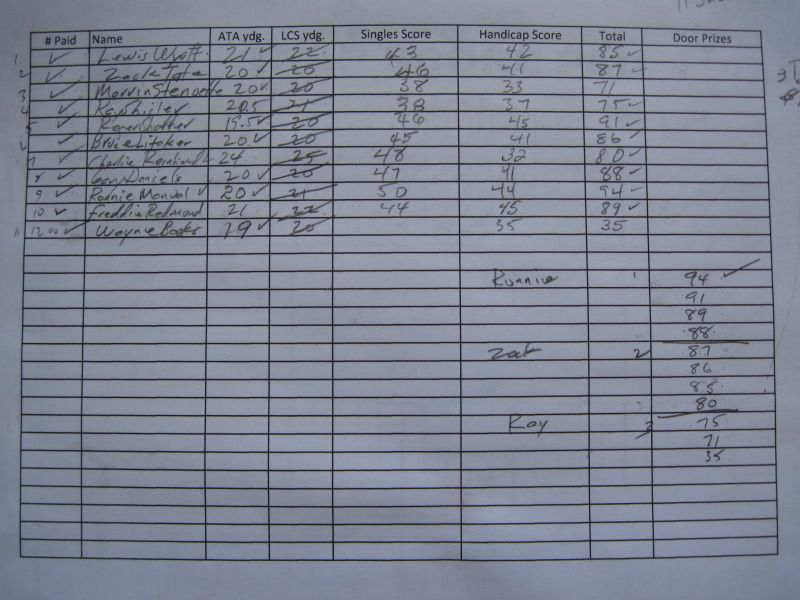 # Paid Name ATA ydg. LCS ydg. Singles Score Handicap Score Total Door Prizes
1 ✓ Lewis Wyatt 21 ✓ 22 43 42 85 ✓
2 ✓ Zack Tate 20 ✓ 20 46 41 87 ✓
3 ✓ Marvin 20 ✓ 20 38 33 71
4 ✓ Ray 20.5 21 38 37 75 ✓
5 ✓ Roger 19.5 ✓ 20 46 45 91 ✓
✓ Bruce Litaker 20 ✓ 20 45 41 86 ✓
7 ✓ Charlie 24 25 48 32 80 ✓
8 ✓ Daniels 20 ✓ 20 47 41 88 ✓
9 ✓ Ronnie ✓ 20 21 50 44 94 ✓
10 ✓ Freddie Redmond 21 22 44 45 89 ✓
11 12.00 ✓ Wayne 19 ✓ 20 35 35
Ronnie 1 94 ✓
91
89
88
Zack 2 87
86
85
80
Ray 3 75
71
35